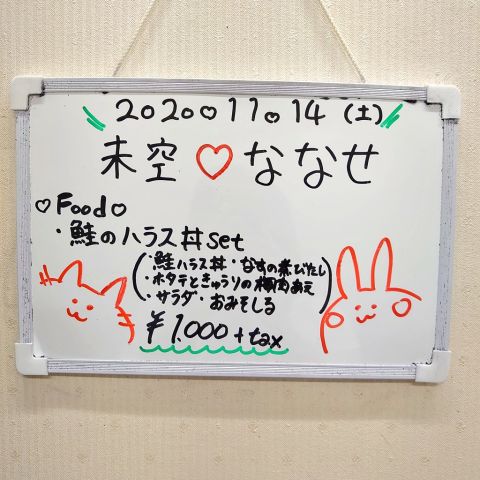 2020♡11.14(土)
未空♡ななせ
♡Food♡
・鮭のハラス丼set
(・鮭ハラス丼・なすの煮びたし
・ホタテときゅうりの梅肉あえ
・サラダ・おみそしる)
¥1,000+tax